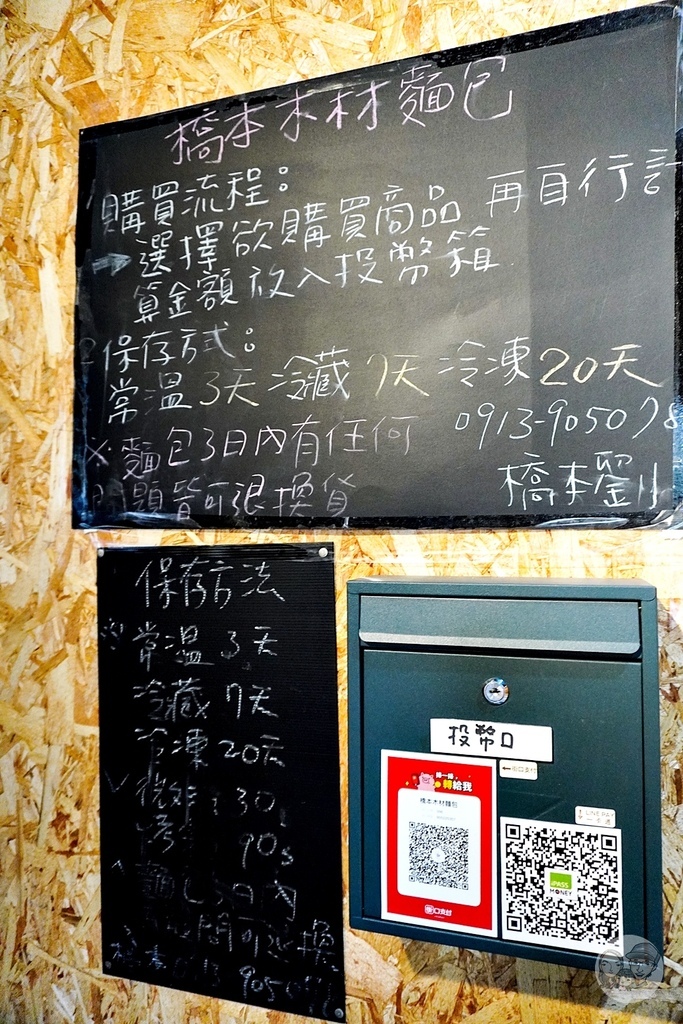 橋本木材麵包
購買流程：
→選擇欲購買商品 再自行計
算金額放入投幣箱
2保存方式：
常溫3天 冷藏7天 冷凍20天
※麵包3日內有任何
問題皆可退換貨
0913-905078
橋本劉
保存方法
常溫 3天
冷藏 7天
冷凍 20天
30s
90s
3日內
投幣口
←街口支付
轉給我
橋本木材麵包
街口支付
LINE PAY
一卡通
iPASS
MONEY